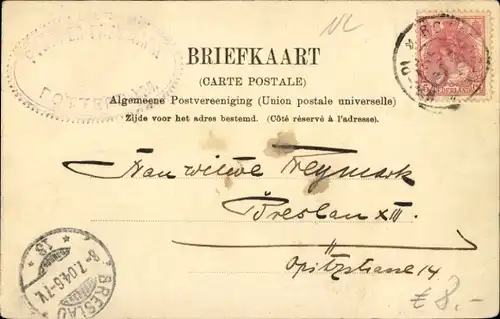 NL
BRIEFKAART
(CARTE POSTALE)
Algemeene Postvereeniging (Union postale universelle)
Zijde voor het adres bestemd. (Côté réservé à l'adresse).
Frau witwe Neymark
Breslau XIII.
Opitzstrasse 14
BRESLAU
£ 8.-